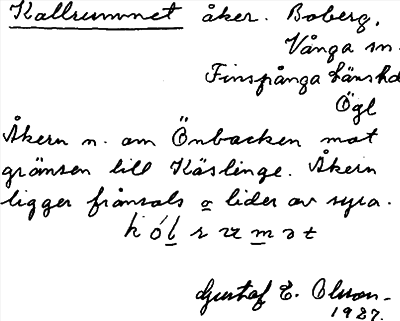 Kallrummet åker. Boberg,
Vånga sn.
Finspånga länshd
Ögl
Åkern n. om Önbacken mot
gränsen till Käslinge. Åkern
ligger frånsols o lider av syra.
Gustaf E. Olsson.
1927.